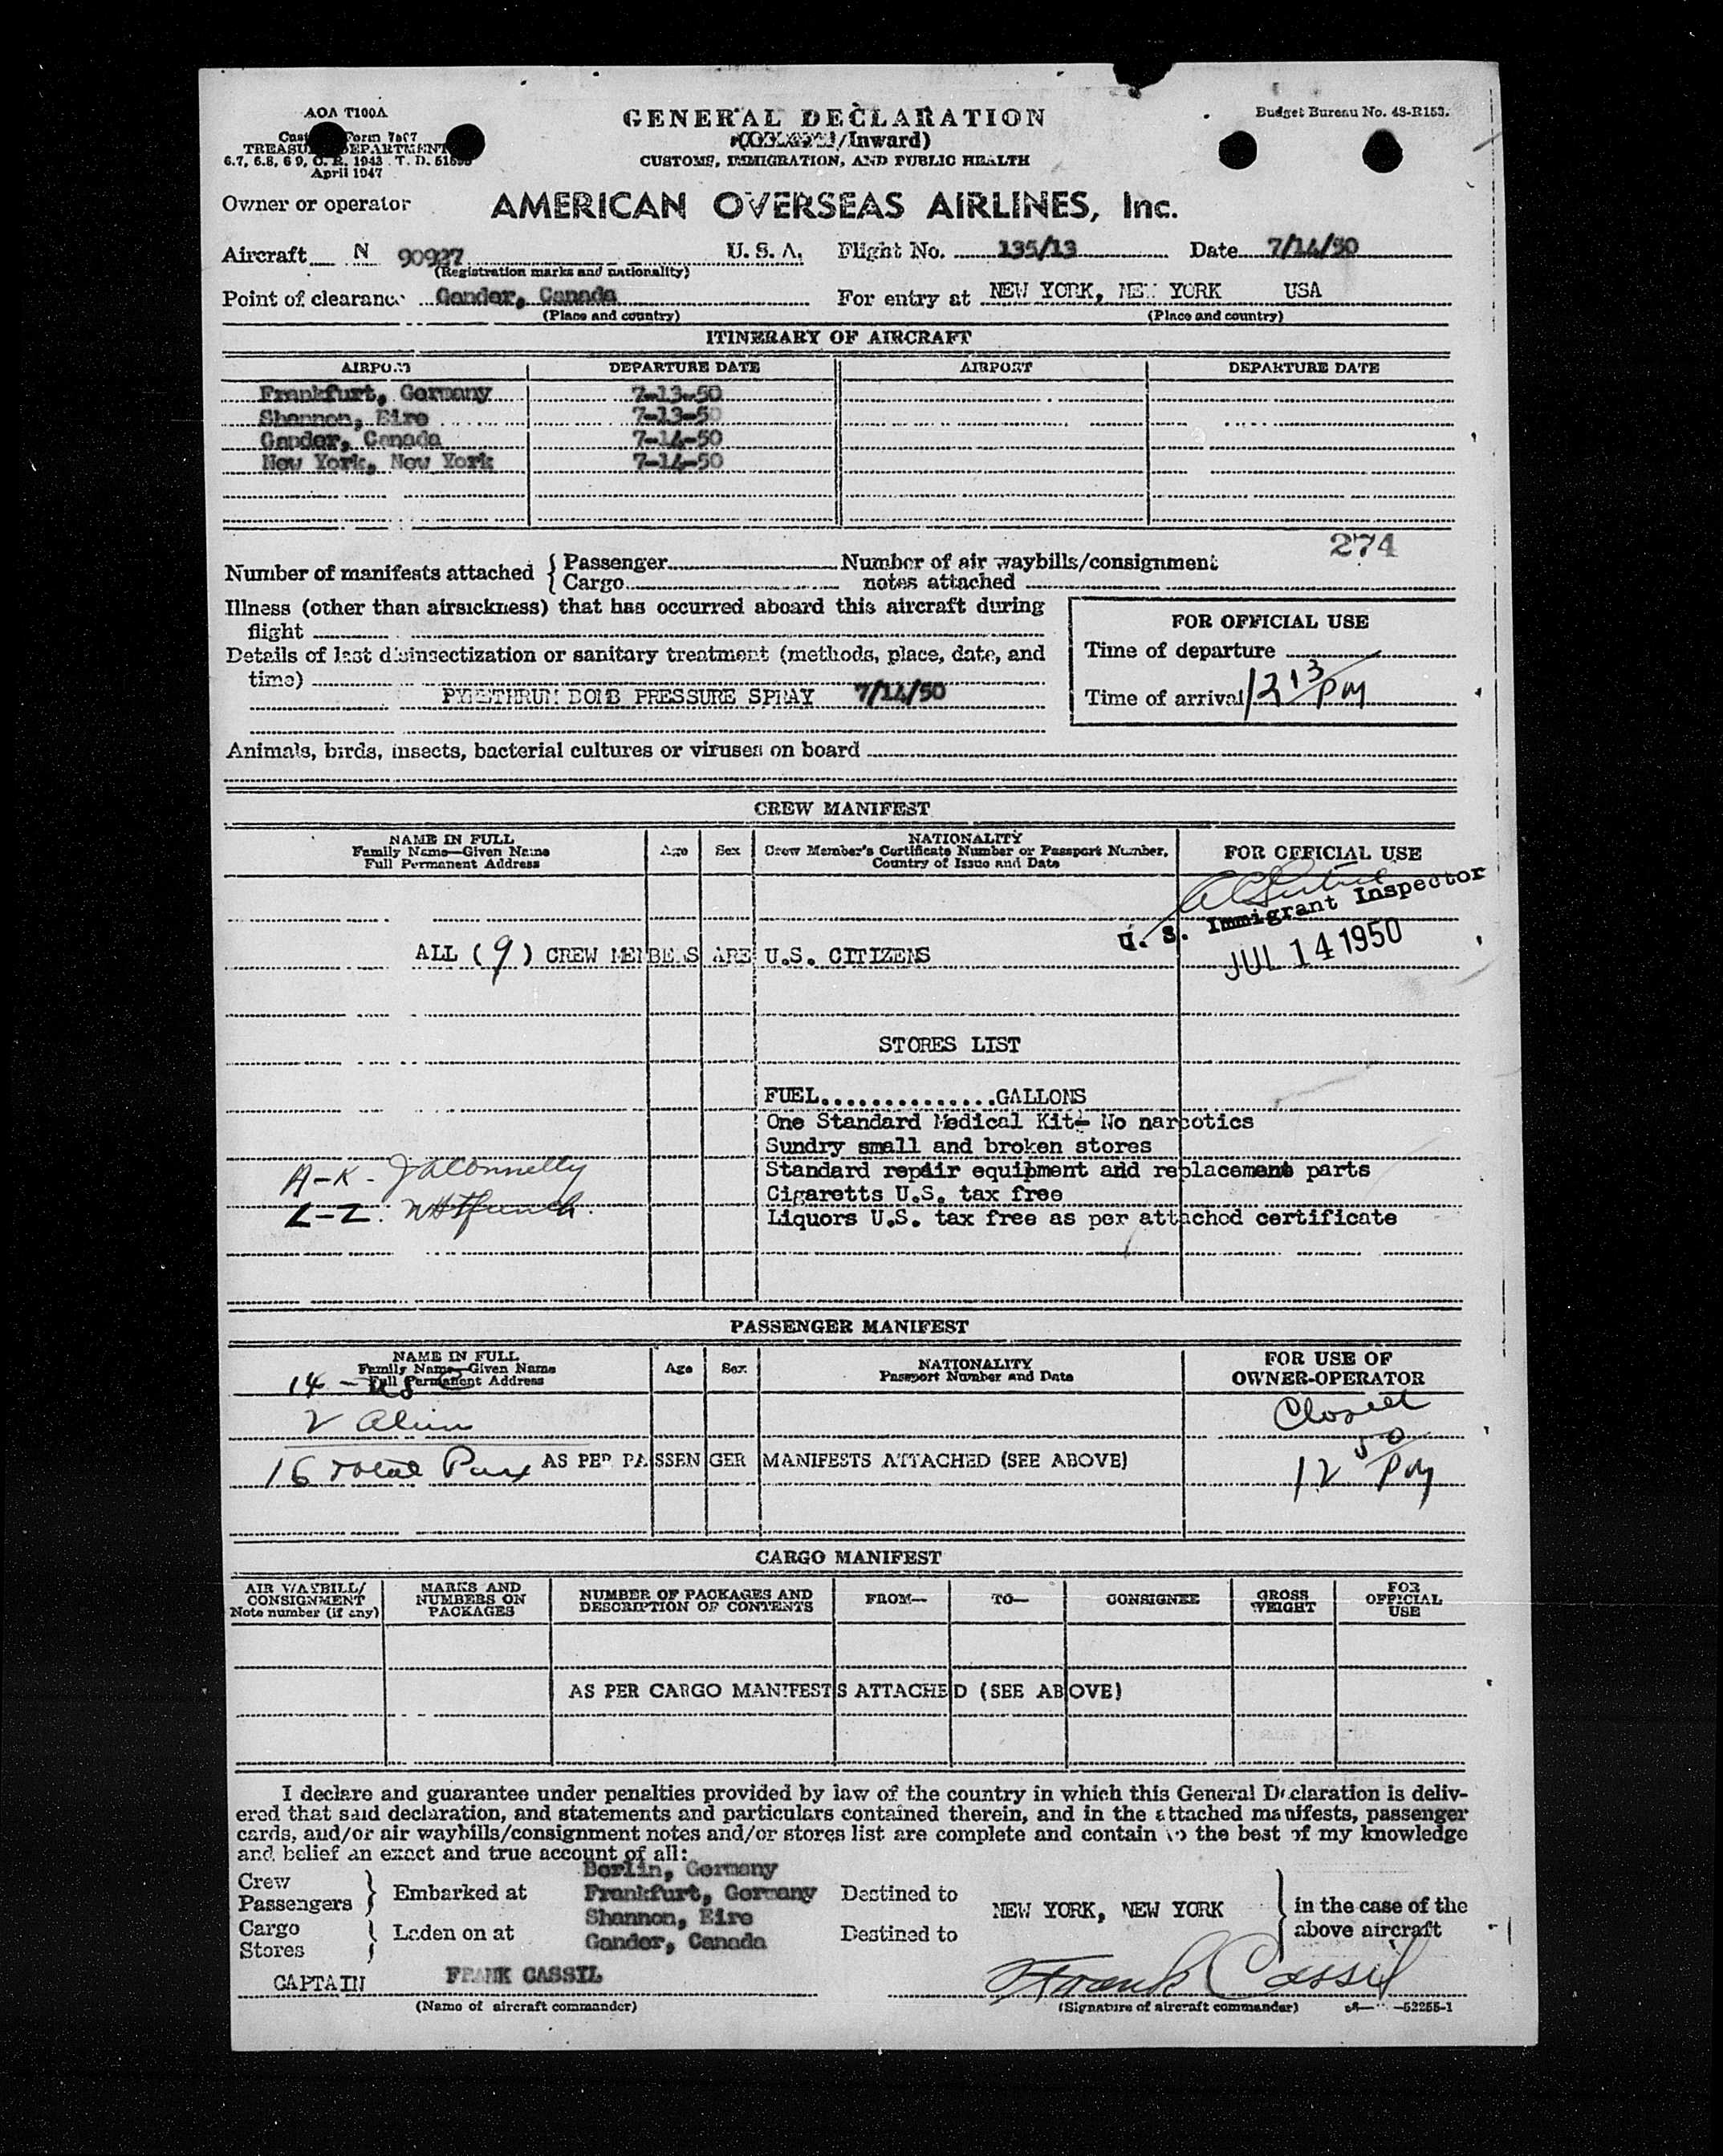 AOA T100A
Form 7507
TREASURY DEPARTMENT
6.7, 6.8, 6 9, C. R. 1943 T. D.
April 1947
GENERAL DECLARATION
(Inward)
CUSTOMS, IMMIGRATION, AND PUBLIC HEALTH
Budget Bureau No. 48-R153.
Owner or operator AMERICAN OVERSEAS AIRLINES, Inc.
Aircraft N 90927 U. S. A. Flight No. 135/13 Date 7/14/50
(Registration marks and nationality)
Point of clearance Gander, Canada For entry at NEW YORK, NEW YORK USA
(Place and country) (Place and country)
ITINERARY OF AIRCRAFT
AIRPORT DEPARTURE DATE AIRPORT DEPARTURE DATE
Frankfurt, Germany 7-13-50
Shannon, Eire 7-13-50
Gander, Canada 7-14-50
New York, New York 7-14-50
274
Number of manifests attached { Passenger Number of air waybills/consignment
Cargo notes attached
Illness (other than airsickness) that has occurred aboard this aircraft during
flight
Details of last disinsectization or sanitary treatment (methods, place, date, and
time)
PYRETHRUM BOMB PRESSURE SPRAY 7/14/50
FOR OFFICIAL USE
Time of departure
Time of arrival 12 13 PM
Animals, birds, insects, bacterial cultures or viruses on board
CREW MANIFEST
NAME IN FULL
Family Name—Given Name
Full Permanent Address
Age Sex
NATIONALITY
Crew Member's Certificate Number or Passport Number,
Country of Issue and Date
FOR OFFICIAL USE
U. S. Immigrant Inspector
JUL 14 1950
ALL (9) CREW MEMBERS ARE U.S. CITIZENS
STORES LIST
FUEL..............GALLONS
One Standard Medical Kit- No narcotics
Sundry small and broken stores
Standard repair equipment and replacement parts
Cigaretts U.S. tax free
Liquors U.S. tax free as per attached certificate
A-K - JAConnelly
L-Z.
PASSENGER MANIFEST
NAME IN FULL
Family Name—Given Name
Full Permanent Address
Age Sex
NATIONALITY
Passport Number and Date
FOR USE OF
OWNER-OPERATOR
14 - USC
2 Alien
16 Total Pax AS PER PASSENGER MANIFESTS ATTACHED (SEE ABOVE)
Closed
12 50 PM
CARGO MANIFEST
AIR WAYBILL/
CONSIGNMENT
Note number (if any)
MARKS AND
NUMBERS ON
PACKAGES
NUMBER OF PACKAGES AND
DESCRIPTION OF CONTENTS
FROM—
TO—
CONSIGNEE
GROSS
WEIGHT
FOR
OFFICIAL
USE
AS PER CARGO MANIFESTS ATTACHED (SEE ABOVE)
I declare and guarantee under penalties provided by law of the country in which this General Declaration is deliv-
ered that said declaration, and statements and particulars contained therein, and in the attached manifests, passenger
cards, and/or air waybills/consignment notes and/or stores list are complete and contain to the best of my knowledge
and belief an exact and true account of all:
Crew
Passengers } Embarked at
Cargo
Stores } Laden on at
Berlin, Germany
Frankfurt, Germany
Shannon, Eire
Gander, Canada
Destined to
Destined to
NEW YORK, NEW YORK
} in the case of the
above aircraft
CAPTAIN FRANK CASSIL Frank Cassil
(Name of aircraft commander) (Signature of aircraft commander) -52255-1